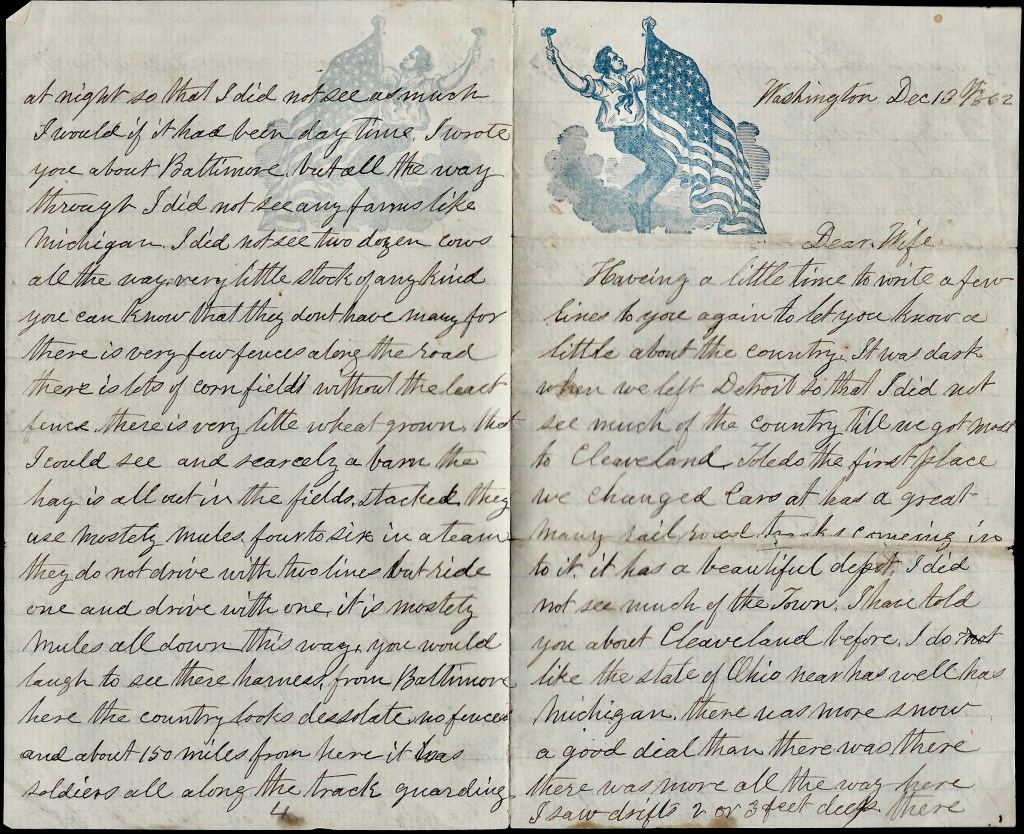 Washington Dec 13th/862
Dear Wife
Haveing a little time to write a few
lines to you again to let you know a
little about the country. It was dark
when we left Detroit so that I did not
see much of the country till we got most
to Cleaveland. Toledo the first place
we changed Cars at has a great
many rail road tracks comeing in
to it. it has a beautiful depot. I did
not see much of the Town. I have told
you about Cleaveland before. I do not
like the state of Ohio near has well has
Michigan. there was more snow
a good dial than there was there
there was more all the way here
I saw drifts 2 or 3 feet deep. there
at night so that I did not see as much
I would if it had been day time. I wrote
you about Baltimore. but all the way
through I did not see any farms like
Michigan. I did not see two dozen cows
all the way. very little stock of any kind
you can know that they dont have many for
there is very few fences along the road
there is lots of corn fields without the least
fence. there is very litle wheat grown. that
I could see and scarcely a barn the
hay is all out in the fields. stacked. they
use mostely mules. four to six in a team
they do not drive with two lines but ride
one and drive with one. it is mostely
mules all down this way. you would
laugh to see there harness. from Baltimore
here the country looks dessolate. no fences
and about 150 miles from here it was
soldiers all along the track guarding
4